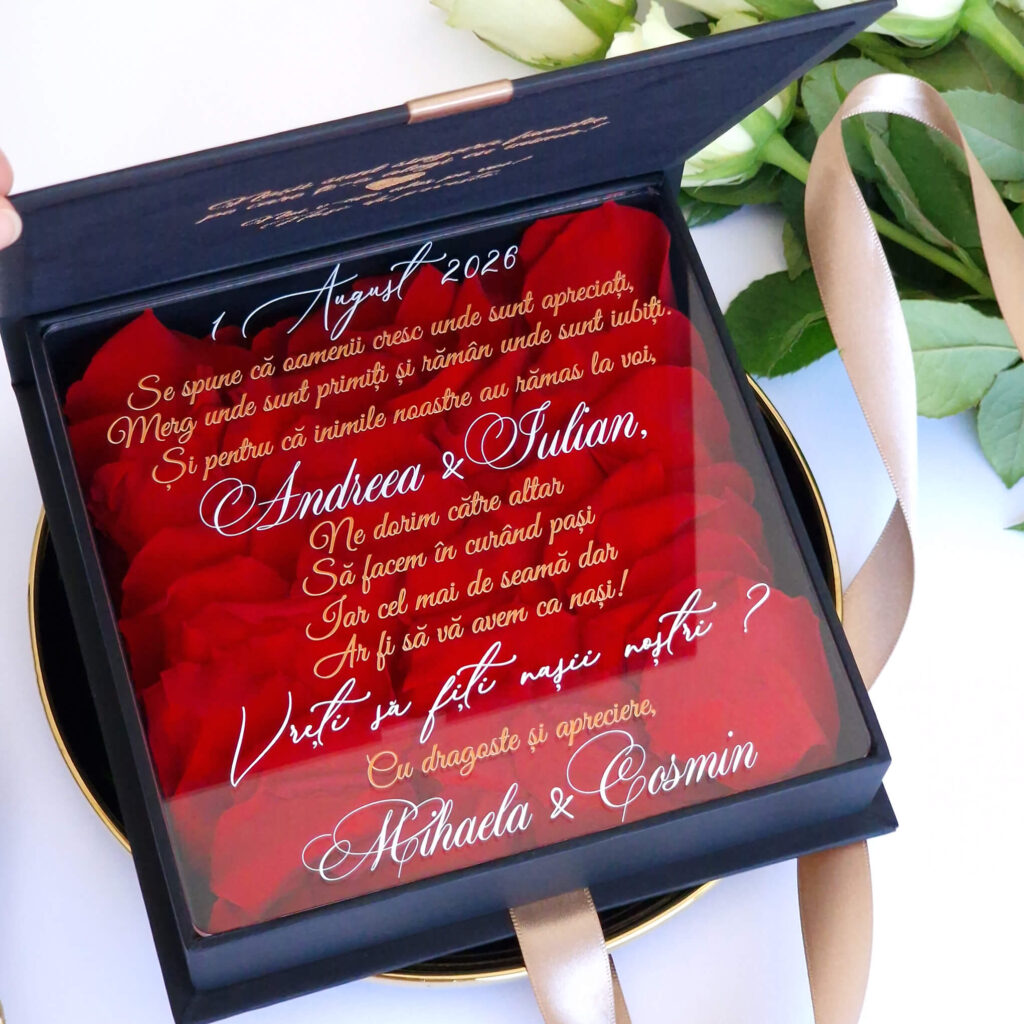 1 August 2026
Se spune că oamenii cresc unde sunt apreciați,
Merg unde sunt primiți și rămân unde sunt iubiți.
Și pentru că inimile noastre au rămas la voi,
Andreea & Iulian,
Ne dorim către altar
Să facem în curând pași
Iar cel mai de seamă dar
Ar fi să vă avem ca nași!
Vreți să fiți nașii noștri ?
Cu dragoste și apreciere,
Mihaela & Cosmin